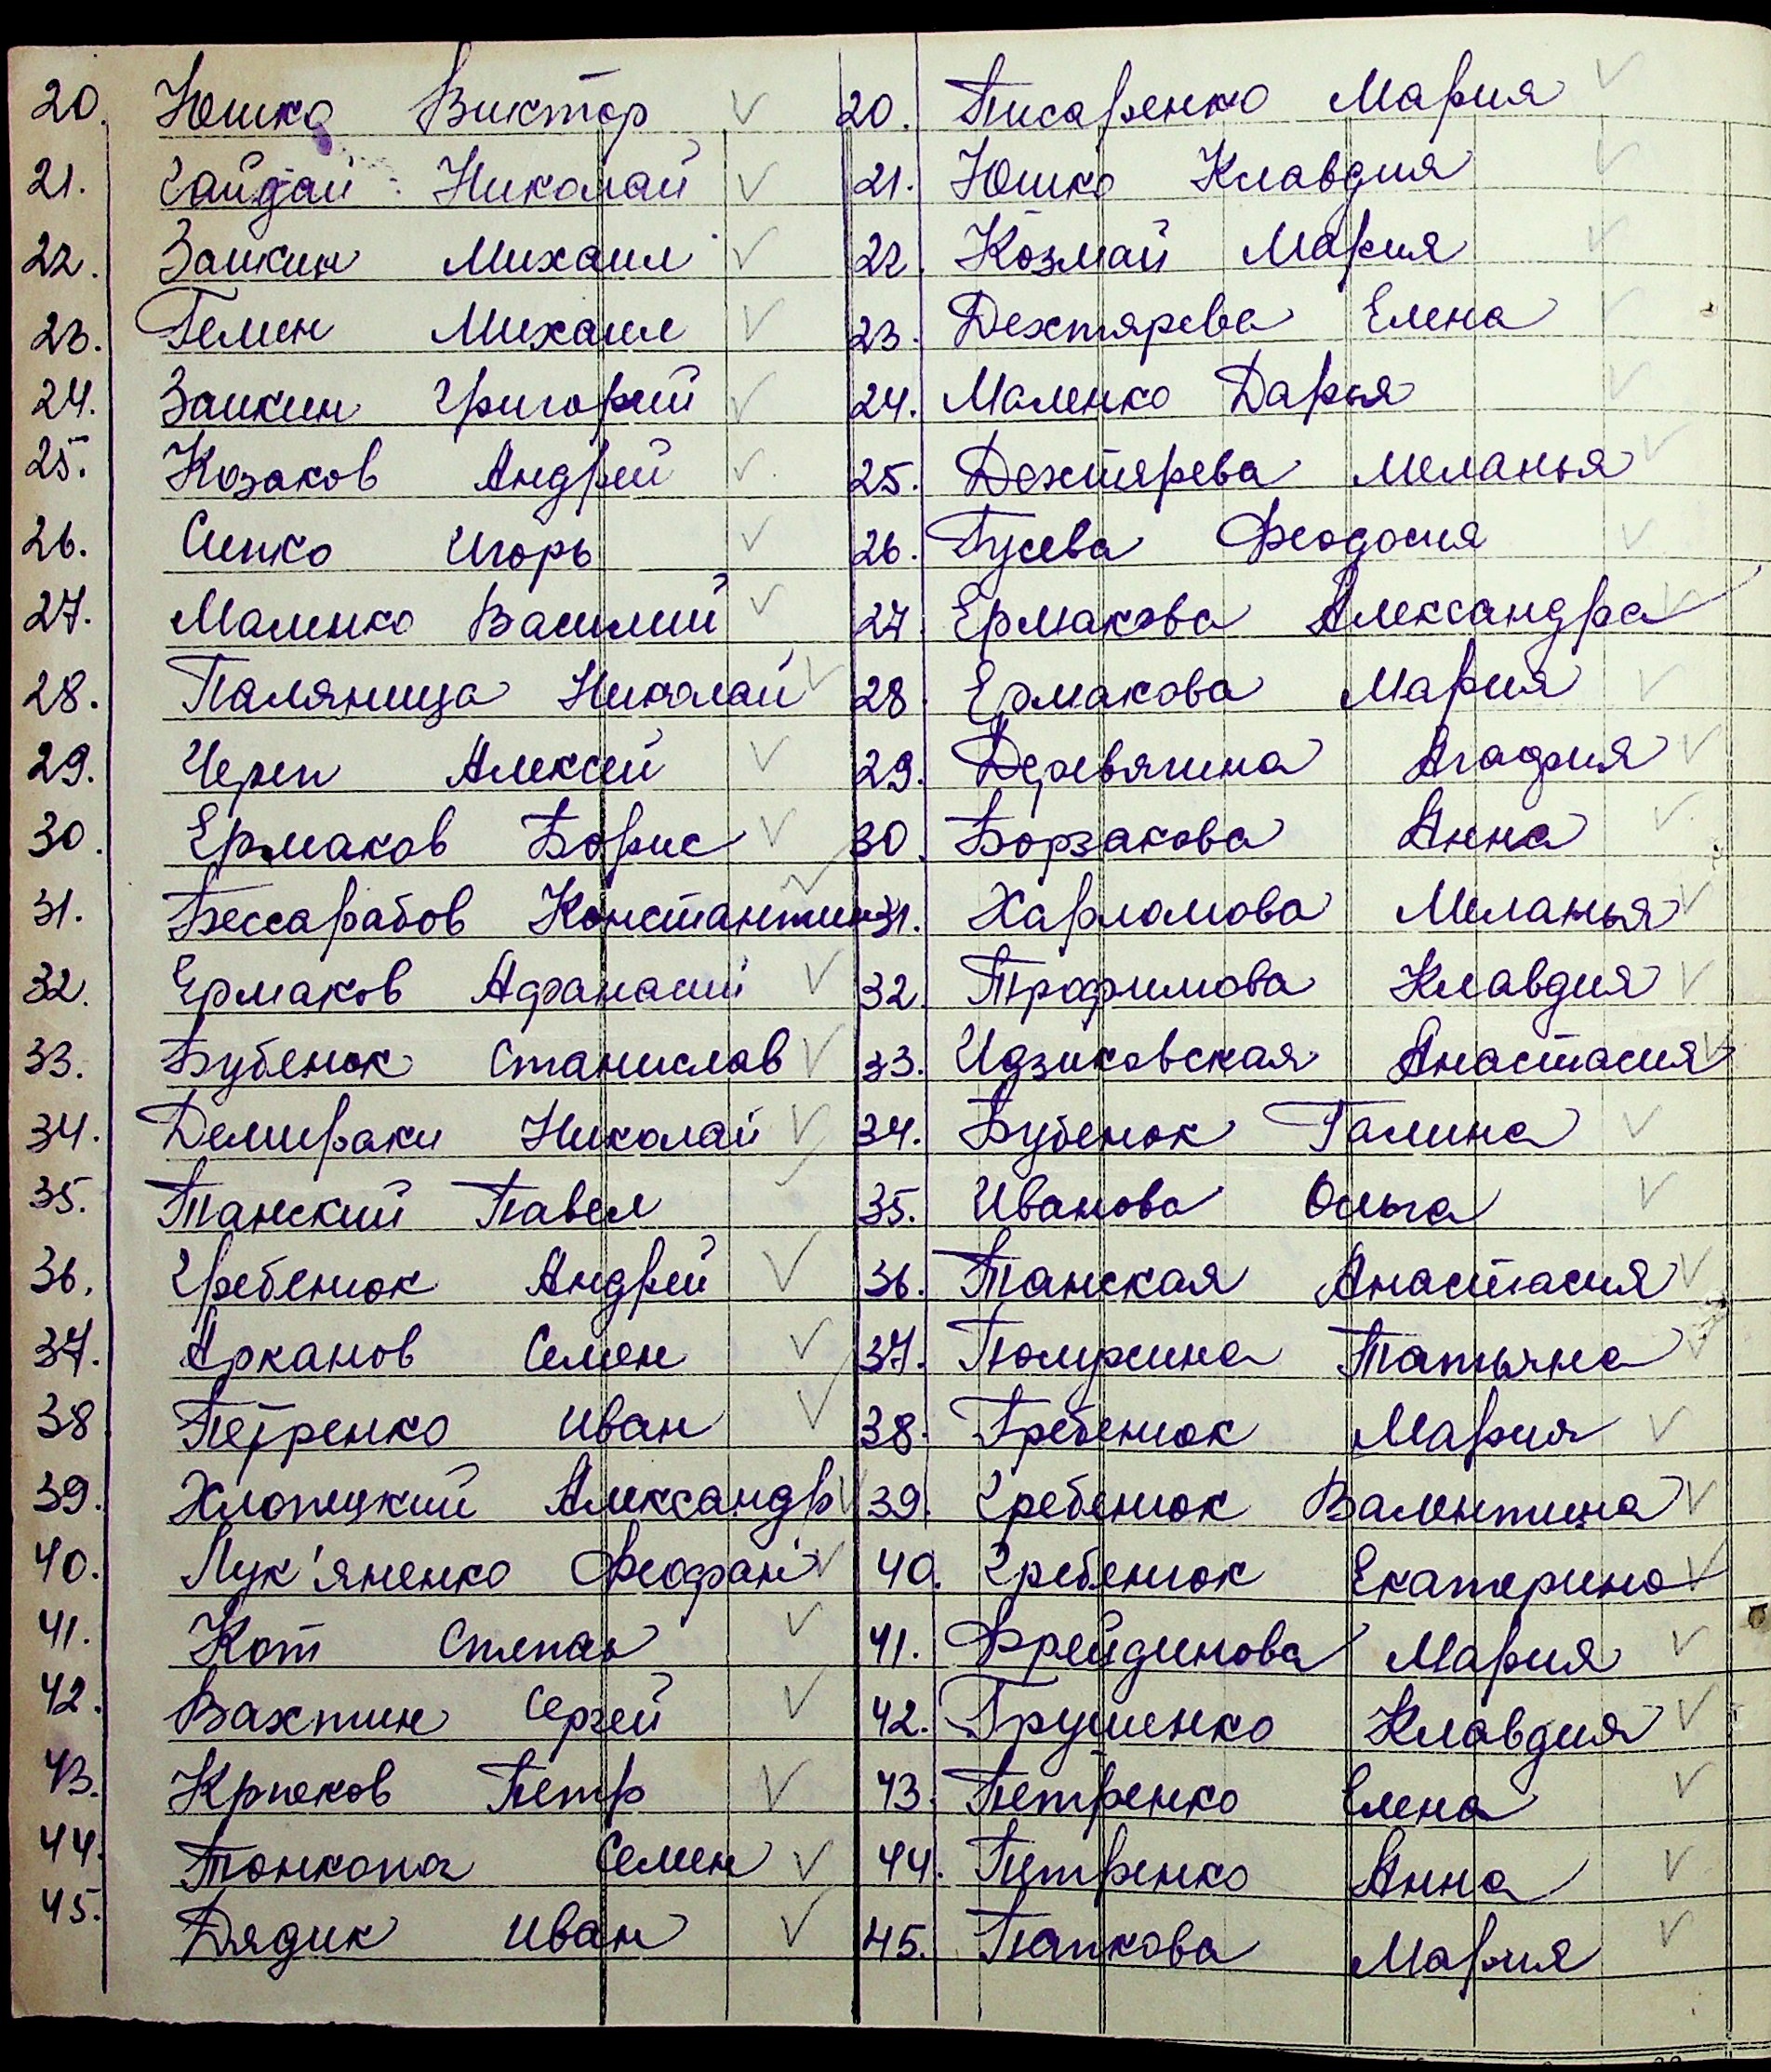 20. Юшко Виктор
21. Гайдай Николай
22. Заикин Михаил
23. Гемен Михаил
24. Заикин Григорий
25. Козаков Андрей
26. Сипко Игорь
27. Маленко Василий
28. Паляница Николай
29. Череп Алексей
30. Ермаков Борис
31. Бессарабов Константин
32. Ермаков Афанасий
33. Бубенок Станислав
34. Демираки Николай
35. Танский Павел
36. Гребенюк Андрей
37. Арканов Семен
38 Петренко Иван
39. Хлопецкий Александр
40. Лук'яненко Феофан
41. Кот Степан
42. Вахтин Сергей
43. Крюков Петр
44. Тонкопа Семен
45. Дядик Иван
20. Писаренко Мария
21. Юшко Клавдия
22. Козмай Мария
23. Дехтярева Елена
24. Маленко Дарья
25. Дехтярева Меланья
26. Гусева Феодосия
27. Ермакова Александра
28 Ермакова Мария
29. Деревягина Агафия
30. Борзакова Анна
31. Харламова Меланья
32. Трофимова Клавдия
33. Идзиковская Анастасия
34. Бубенок Галина
35. Иванова Ольга
36. Танская Анастасия
37. Татьяна
38. Гребенюк Мария
39. Гребенюк Валентина
40. Гребенюк Екатерина
41. Фрейдинова Мария
42. Грушенко Клавдия
43. Петренко Елена
44. Петренко Анна
45. Папкова Мария